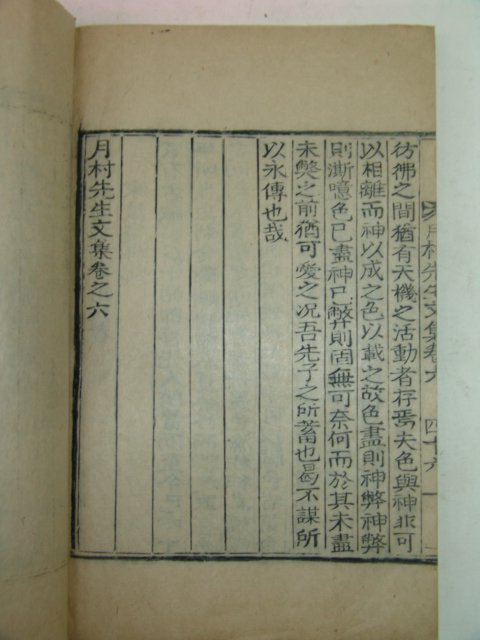 月村先生文集卷六　四十六
彷彿之間猶有天機之活動者存焉夫色與神非可
以相離而神以成之色以載之故色盡則神弊神弊
則澌噫色已盡神已弊則固無可奈何而於其未盡
未獘之前猶可愛之况吾先子之所蓄也曷不謀所
以永傳也哉
月村先生文集卷之六